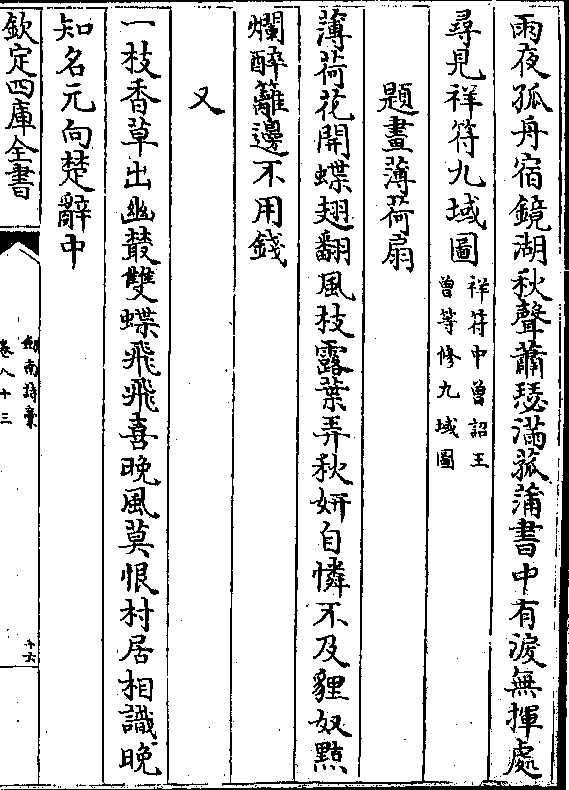 雨夜孤舟宿鏡湖秋聲蕭瑟滿菰蒲書中有淚無揮處
尋見祥符九域圖
祥符中曾詔王
曾等修九域圖
題畫薄荷扇
薄荷花開蝶翅翻風枝露葉弄秋妍自憐不及貍奴黠
爛醉籬邊不用錢
又
一枝香草出幽叢雙蝶飛飛喜晚風莫恨村居相識晚
知名元向楚辭中
欽定四庫全書
劍南詩稾
卷八十三
十六